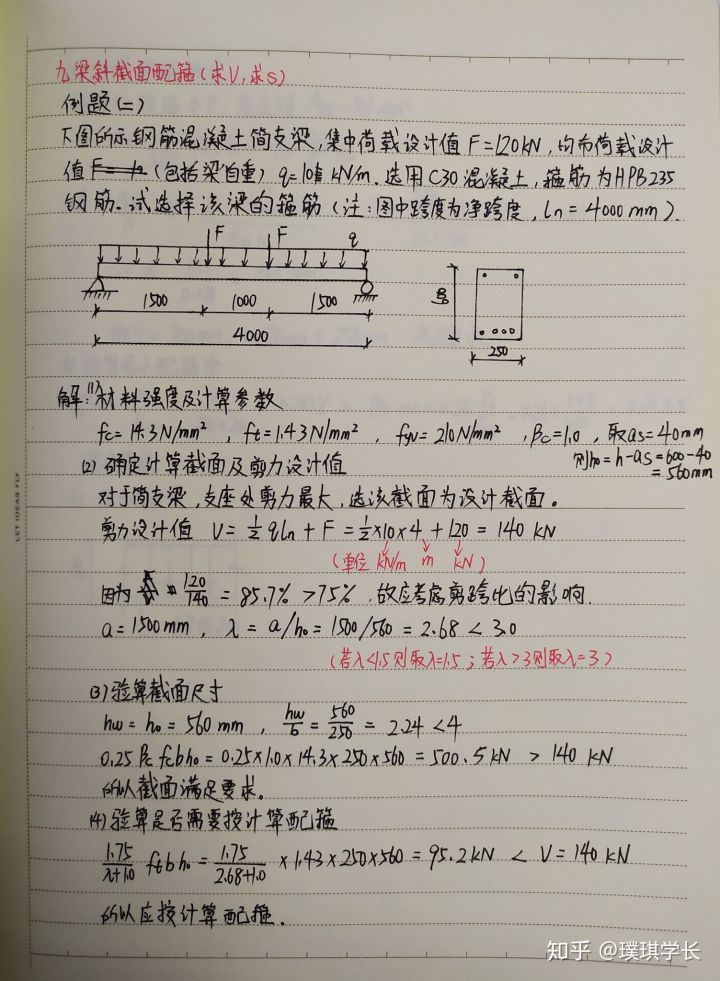 九梁斜截面配箍(求V,求S)
例题(二)
下图所示钢筋混凝土简支梁,集中荷载设计值F=120kN,均布荷载设计
值(包括梁自重)q=10 kN/m.选用C30混凝土,箍筋为HPB235
钢筋.试选择该梁的箍筋(注:图中跨度为净跨度,ln=4000mm).
F F q
1500 1000 1500
4000
250
解:(1)材料强度及计算参数
fc=14.3N/mm²,ft=1.43N/mm²,fyv=210N/mm²,βc=1.0,取as=40mm
则h0=h-as=600-40
=560mm
(2)确定计算截面及剪力设计值
对于简支梁,支座处剪力最大,选该截面为设计截面。
剪力设计值 V=½qln+F=½×10×4+120=140 kN
(单位 kN/m m kN)
因为 120/140=85.7%>75%,故应考虑剪跨比的影响.
a=1500mm,λ=a/h0=1500/560=2.68<3.0
(若λ<1.5则取λ=1.5;若λ>3则取λ=3)
(3)验算截面尺寸
hw=h0=560mm,hw/b=560/250=2.24<4
0.25βcfcbh0=0.25×1.0×14.3×250×560=500.5kN>140 kN
所以截面满足要求。
(4)验算是否需要按计算配箍
1.75/(λ+1.0) ftbh0=1.75/(2.68+1.0)×1.43×250×560=95.2kN<V=140 kN
所以应按计算配箍.
LET IDEAS FLY
知乎 @璞琪学长